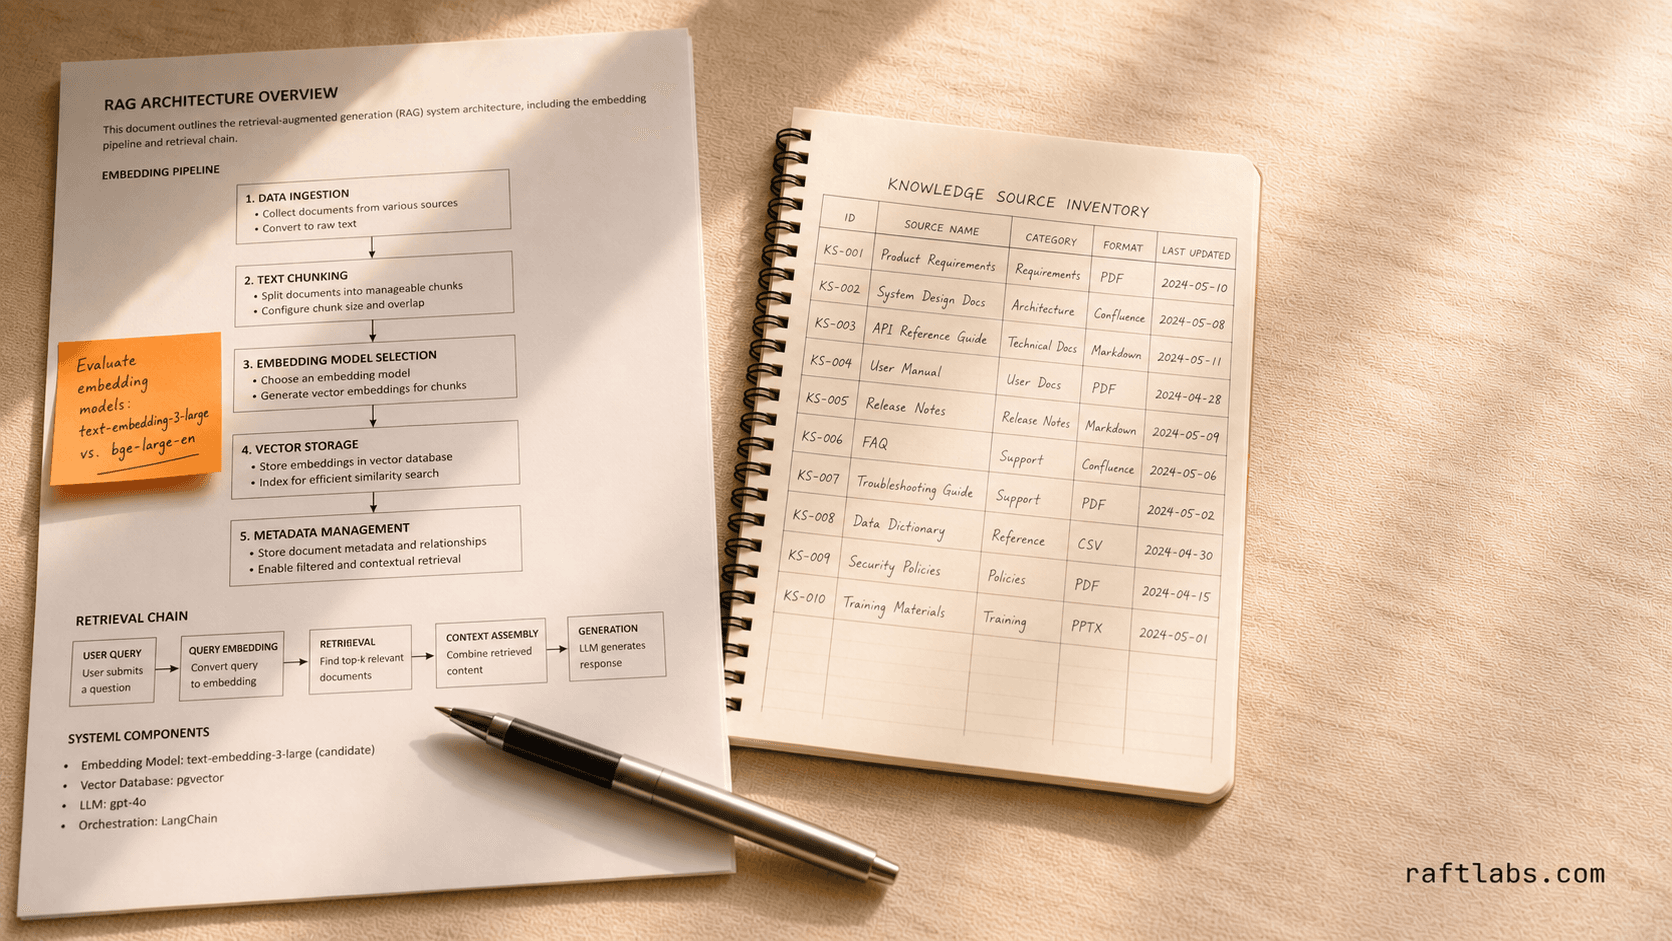 RAG ARCHITECTURE OVERVIEW
This document outlines the retrieval-augmented generation (RAG) system architecture, including the embedding
pipeline and retrieval chain.
EMBEDDING PIPELINE
1. DATA INGESTION
• Collect documents from various sources
• Convert to raw text
2. TEXT CHUNKING
• Split documents into manageable chunks
• Configure chunk size and overlap
3. EMBEDDING MODEL SELECTION
• Choose an embedding model
• Generate vector embeddings for chunks
4. VECTOR STORAGE
• Store embeddings in vector database
• Index for efficient similarity search
5. METADATA MANAGEMENT
• Store document metadata and relationships
• Enable filtered and contextual retrieval
Evaluate
embedding
models:
text-embedding-3-large
vs. bge-large-en
RETRIEVAL CHAIN
USER QUERY
User submits
a question
QUERY EMBEDDING
Convert query
to embedding
RETRIEVAL
Find top-k relevant
documents
CONTEXT ASSEMBLY
Combine retrieved
content
GENERATION
LLM generates
response
SYSTEML COMPONENTS
• Embedding Model: text-embedding-3-large (candidate)
• Vector Database: pgvector
• LLM: gpt-4o
• Orchestration: LangChain
KNOWLEDGE SOURCE INVENTORY
ID SOURCE NAME CATEGORY FORMAT LAST UPDATED
KS-001 Product Requirements Requirements PDF 2024-05-10
KS-002 System Design Docs Architecture Confluence 2024-05-08
KS-003 API Reference Guide Technical Docs Markdown 2024-05-11
KS-004 User Manual User Docs PDF 2024-04-28
KS-005 Release Notes Release Notes Markdown 2024-05-09
KS-006 FAQ Support Confluence 2024-05-06
KS-007 Troubleshooting Guide Support PDF 2024-05-02
KS-008 Data Dictionary Reference CSV 2024-04-30
KS-009 Security Policies Policies PDF 2024-04-15
KS-010 Training Materials Training PPTX 2024-05-01
raftlabs.com